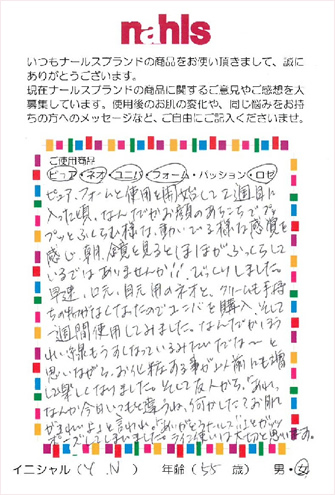 nahls
いつもナールスブランドの商品をお使い頂きまして、誠に
ありがとうございます。
現在ナールスブランドの商品に関するご意見やご感想を大
募集しています。使用後のお肌の変化や、同じ悩みをお持
ちの方へのメッセージなど、ご自由にご記入くださいませ。
ご使用商品
ピュア・ネオ・ユニバ・フォーム・パッション・ロゼ
ピュア、フォームと使用を開始して2週目に
入った頃、なんだかお顔のあちこちでプ
プッとふくらむ様な、動いている様な感覚を
感じ、朝、鏡を見るとほほがふっくらして
いるではありませんか!! びっくりしました。
早速、口元、目元用のネオと、クリームも手持
ちの物がなくなったのでユニバを購入、そして
一週間使用してみました。なんだかほう
れい線もうすくなっているみたいだな〜と
思いながら、お化粧する事が以前にも増
して楽しくなりました。そして友人から、「あれ、
なんか今日いつもと違うね、何かした?お肌
がきれいよ」と言われ、「ありがとう
ポーズしてしまいました。 使いは大切と思います。
イニシャル(Y.N) 年齢(55歳) 男・女